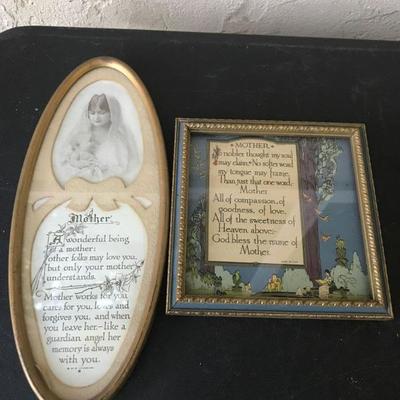 Mother.
A wonderful being
is a mother:
other folks may love you,
but only your mother
understands.
Mother works for you
cares for you, loves and
forgives you, and when
you leave her,-like a
guardian angel her
memory is always
with you.
MOTHER
No nobler thought my soul
may claim, No softer word
my tongue may frame,
Than just that one word;
Mother
All of compassion, of
goodness, of love,
All of the sweetness of
Heaven above;-
God bless the name of
Mother.